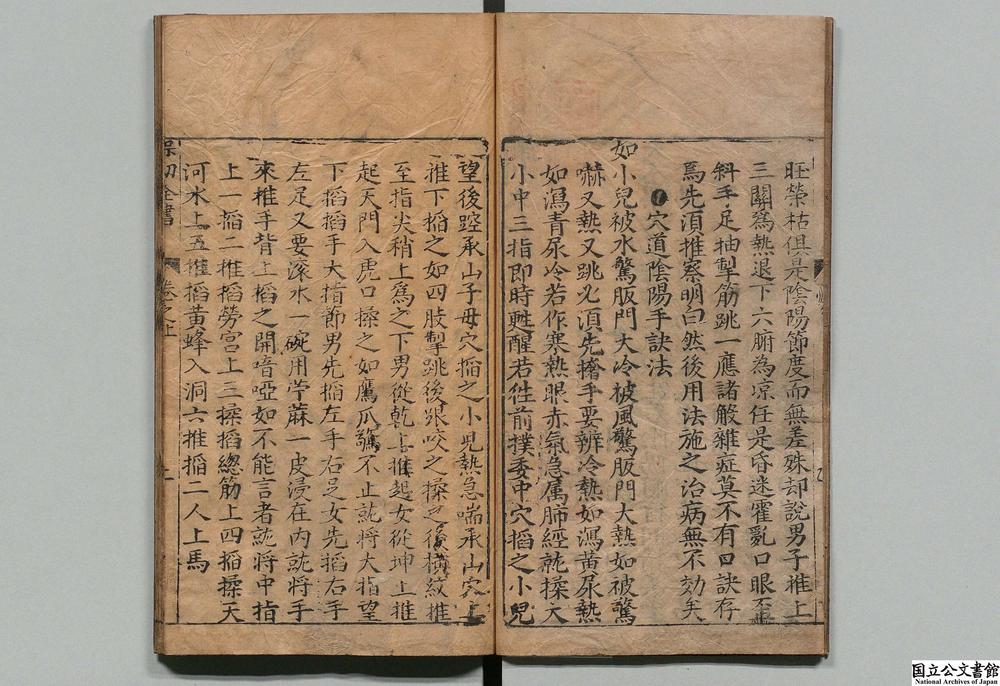 旺榮枯俱是陰陽節度而無差殊却說男子推上
三關為熱退下六腑為凉任是昏迷霍亂口眼歪
斜手足抽掣筋跳一應諸般雜症莫不有口訣存
焉先須推察明白然後用法施之治病無不効矣
穴道陰陽手訣法
如小兒被水驚版門大冷被風驚版門大熱如被驚
嚇又熱又跳必須先㩜手要辨冷熱如瀉黃尿熱
如瀉青尿冷若作寒熱眼赤氣急属肺經就揉大
小中三指即時甦醒若徃前撲委中穴搯之小兒
望後跧承山子母穴搯之小兒熱急喘承山穴上
推下搯之如四肢掣跳後跟咬之揉之後橫紋推
至指尖稍上為之下男從乾上推起女從坤上推
起天門入虎口揉之如鷹爪驚不止就將大指望
下搯搯手大指節男先搯左手右足女先搯右手
左足又要滚水一碗用苧蔴一皮浸在內就將手
來推手背上搯之開音啞如不能言者就將中指
上一搯二推搯勞宮上三揉搯總筋上四搯揉天
河水上五推搯黃蜂入洞六推搯二人上馬
保幼全書 卷之上
国立公文書館
National Archives of Japan